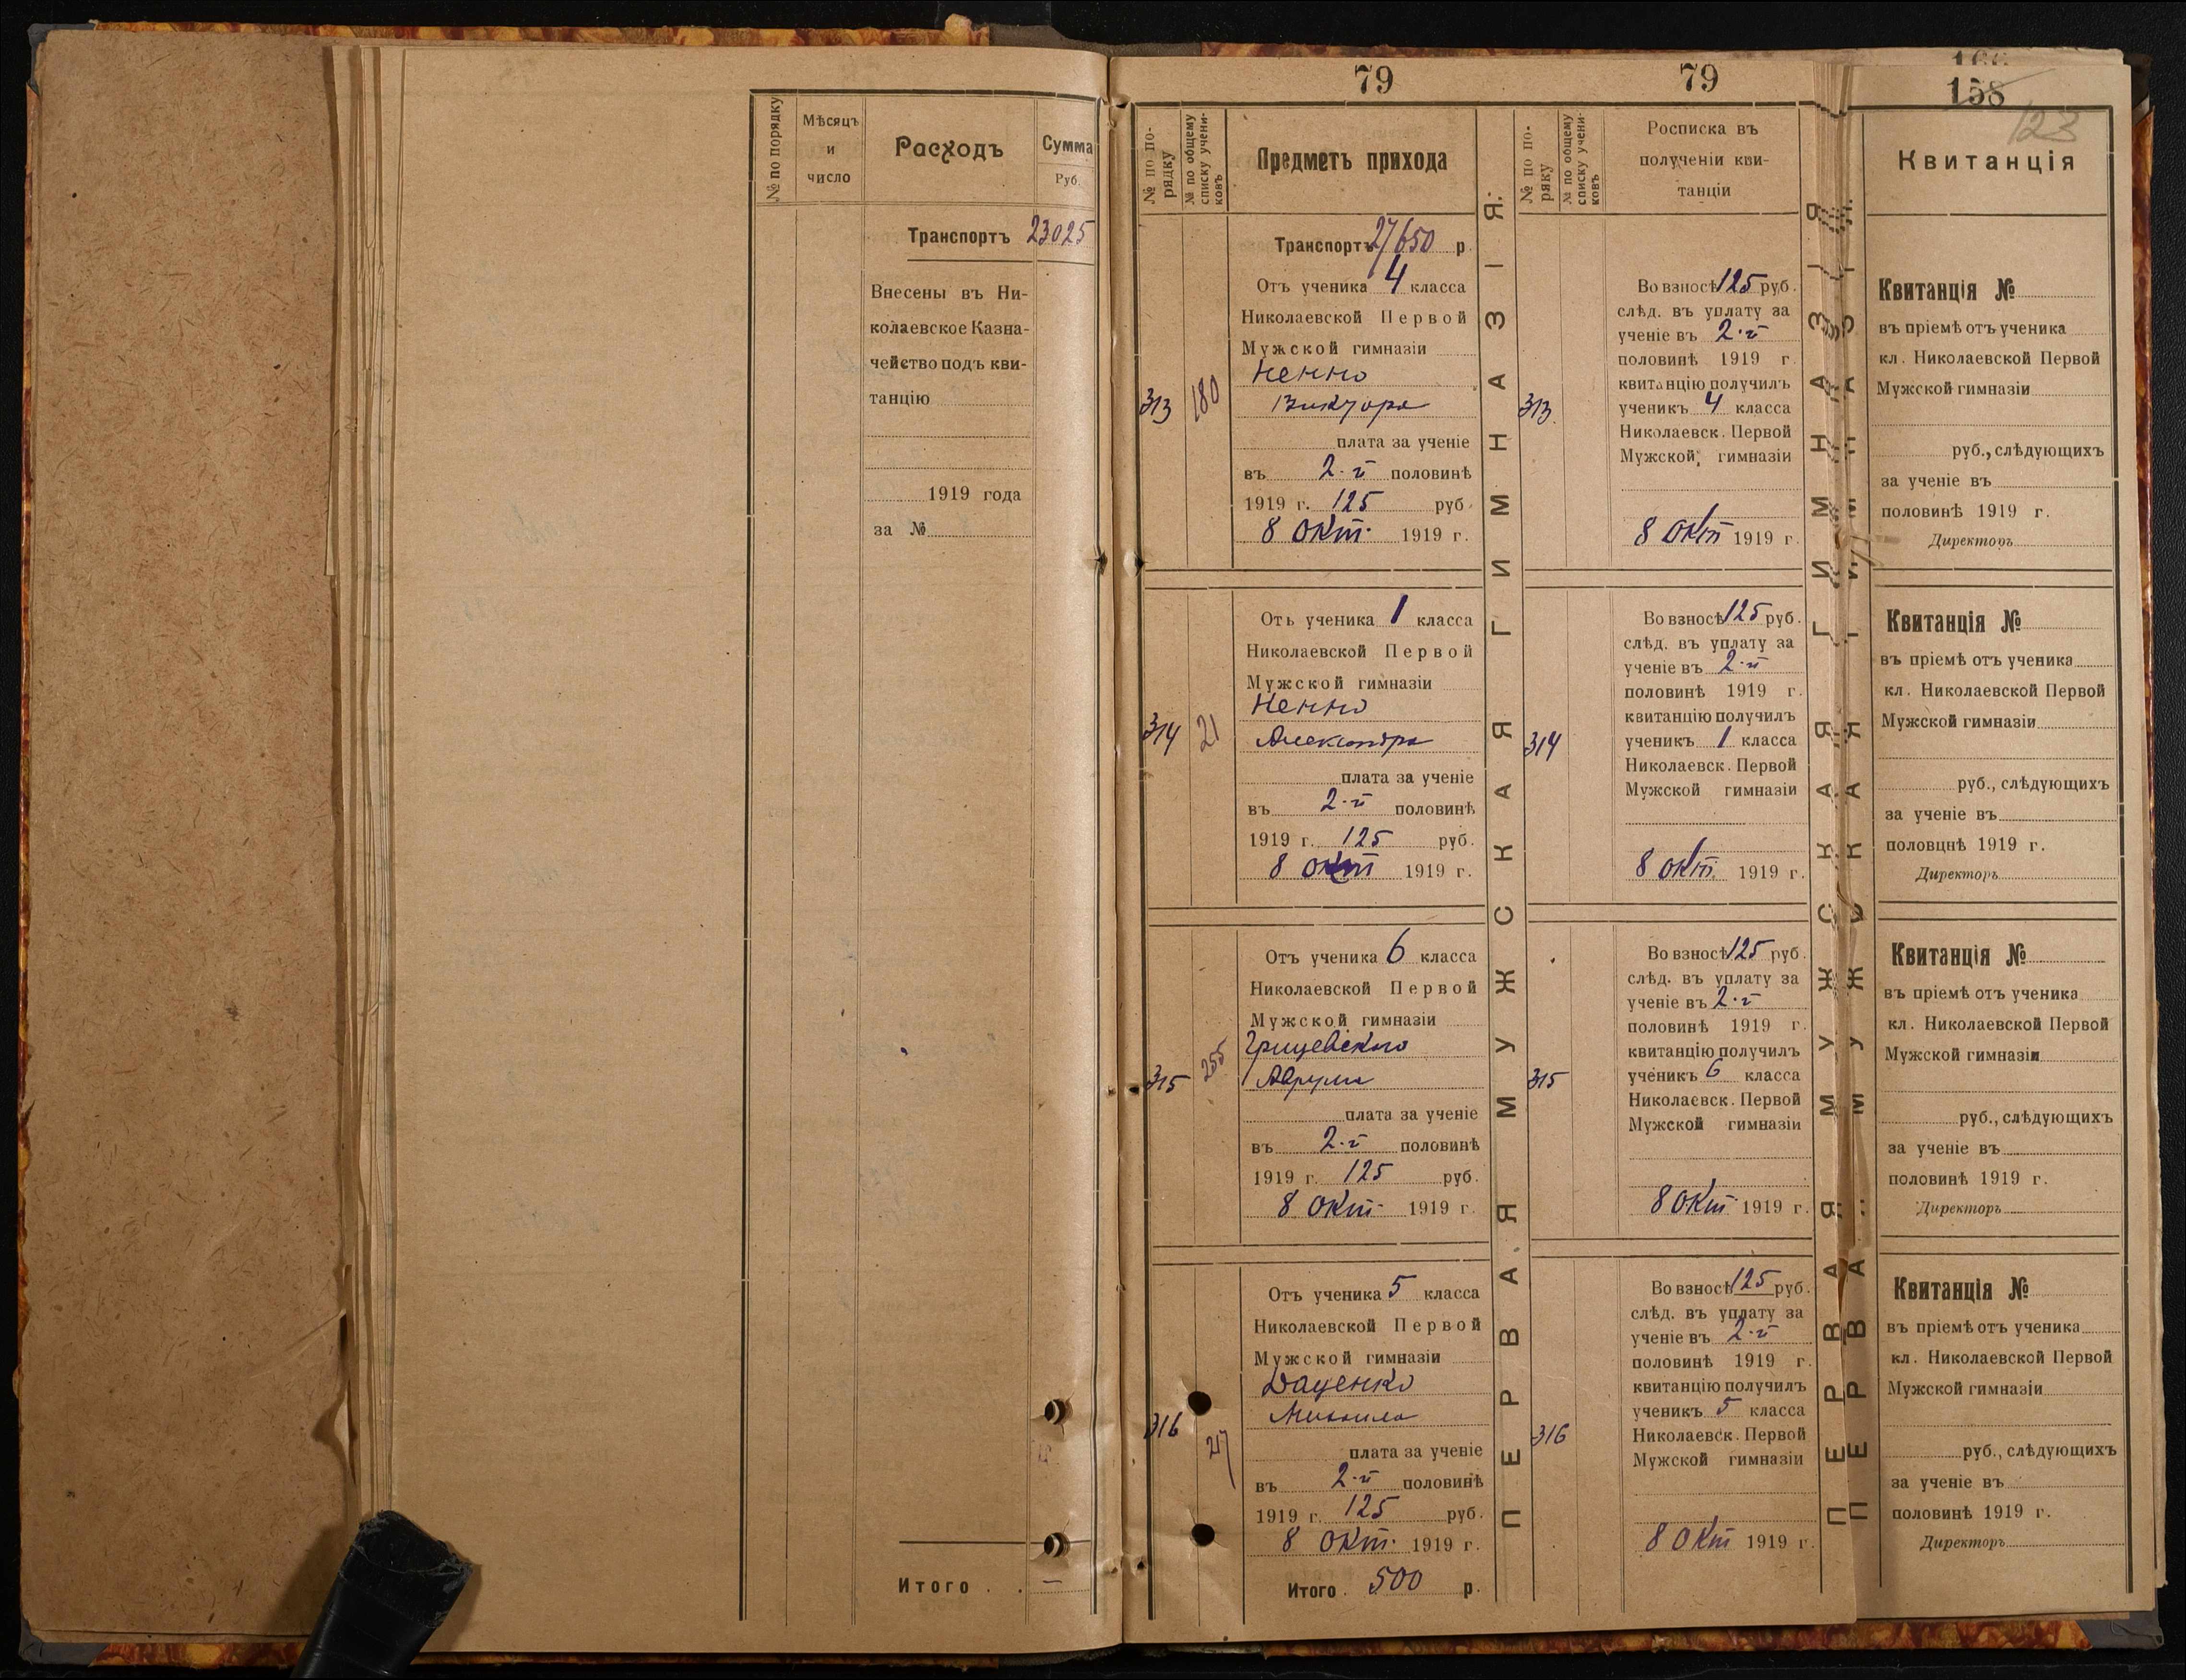 № по порядку
Мѣсяцъ
и
число
Расходъ
Сумма
Руб.
Транспортъ 23025
Внесены въ Ни-
колаевское Казна-
чейство подъ кви-
танцію
1919 года
за №
Итого . . —
79
№ по по-
рядку
№ по общему
списку учени-
ковъ
Предметъ прихода
Транспортъ 27650 р.
313
180
Отъ ученика 4 класса
Николаевской Первой
Мужской гимназіи
Ненно
Виктора
плата за ученіе
въ 2-й половинѣ
1919 г. 125 руб.
8 Окт. 1919 г.
314
21
Отъ ученика 1 класса
Николаевской Первой
Мужской гимназіи
Ненно
Александра
плата за ученіе
въ 2-й половинѣ
1919 г. 125 руб.
8 Окт 1919 г.
315
255
Отъ ученика 6 класса
Николаевской Первой
Мужской гимназіи
Грицевского
Аврума
плата за ученіе
въ 2-й половинѣ
1919 г. 125 руб.
8 Окт. 1919 г.
316
217
Отъ ученика 5 класса
Николаевской Первой
Мужской гимназіи
Даценко
Михаила
плата за ученіе
въ 2-й половинѣ
1919 г. 125 руб.
8 Окт. 1919 г.
Итого . 500 р.
ПЕРВАЯ МУЖСКАЯ ГИМНАЗІЯ.
79
№ по по-
ряку
№ по общему
списку учени-
ковъ
Росписка въ
полученіи кви-
танціи
313
Во взносѣ 125 руб.
слѣд. въ уплату за
ученіе въ 2-й
половинѣ 1919 г.
квитанцію получилъ
ученикъ 4 класса
Николаевск. Первой
Мужской гимназіи
8 Окт 1919 г.
314
Во взносѣ 125 руб.
слѣд. въ уплату за
ученіе въ 2-й
половинѣ 1919 г.
квитанцію получилъ
ученикъ 1 класса
Николаевск. Первой
Мужской гимназіи
8 Окт. 1919 г.
315
Во взносѣ 125 руб.
слѣд. въ уплату за
ученіе въ 2-й
половинѣ 1919 г.
квитанцію получилъ
ученикъ 6 класса
Николаевск. Первой
Мужской гимназіи
8 Окт. 1919 г.
316
Во взносѣ 125 руб.
слѣд. въ уплату за
ученіе въ 2-й
половинѣ 1919 г.
квитанцію получилъ
ученикъ 5 класса
Николаевск. Первой
Мужской гимназіи
8 Окт 1919 г.
ПЕРВАЯ МУЖСКАЯ ГИМНАЗІЯ
158
123
Квитанція
Квитанція №
въ пріемѣ отъ ученика
кл. Николаевской Первой
Мужской гимназіи
руб., слѣдующихъ
за ученіе въ
половинѣ 1919 г.
Директоръ
Квитанція №
въ пріемѣ отъ ученика
кл. Николаевской Первой
Мужской гимназіи
руб., слѣдующихъ
за ученіе въ
половцнѣ 1919 г.
Директоръ
Квитанція №
въ пріемѣ отъ ученика
кл. Николаевской Первой
Мужской гимназіи
руб., слѣдующихъ
за ученіе въ
половинѣ 1919 г.
Директоръ
Квитанція №
въ пріемѣ отъ ученика
кл. Николаевской Первой
Мужской гимназіи
руб., слѣдующихъ
за ученіе въ
половинѣ 1919 г.
Директоръ